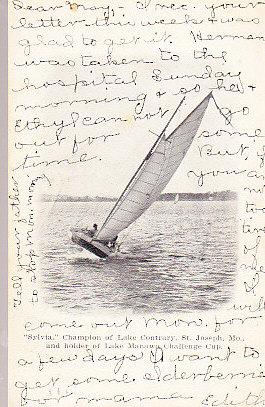 Dear May,- I rec. your
letter this week & was
glad to get it. Herman
was taken to the
hospital Sunday
morning & so he &
Ethyl can not go
out for some
time. But, if
you are not
two
come out Mon. for
a few days I want to
get some elderberries
for mama. Edith
Tell your father
to stop mon. morn.
"Sylvia," Champion of Lake Contrary, St. Joseph, Mo.,
and holder of Lake Manawa Challenge Cup.